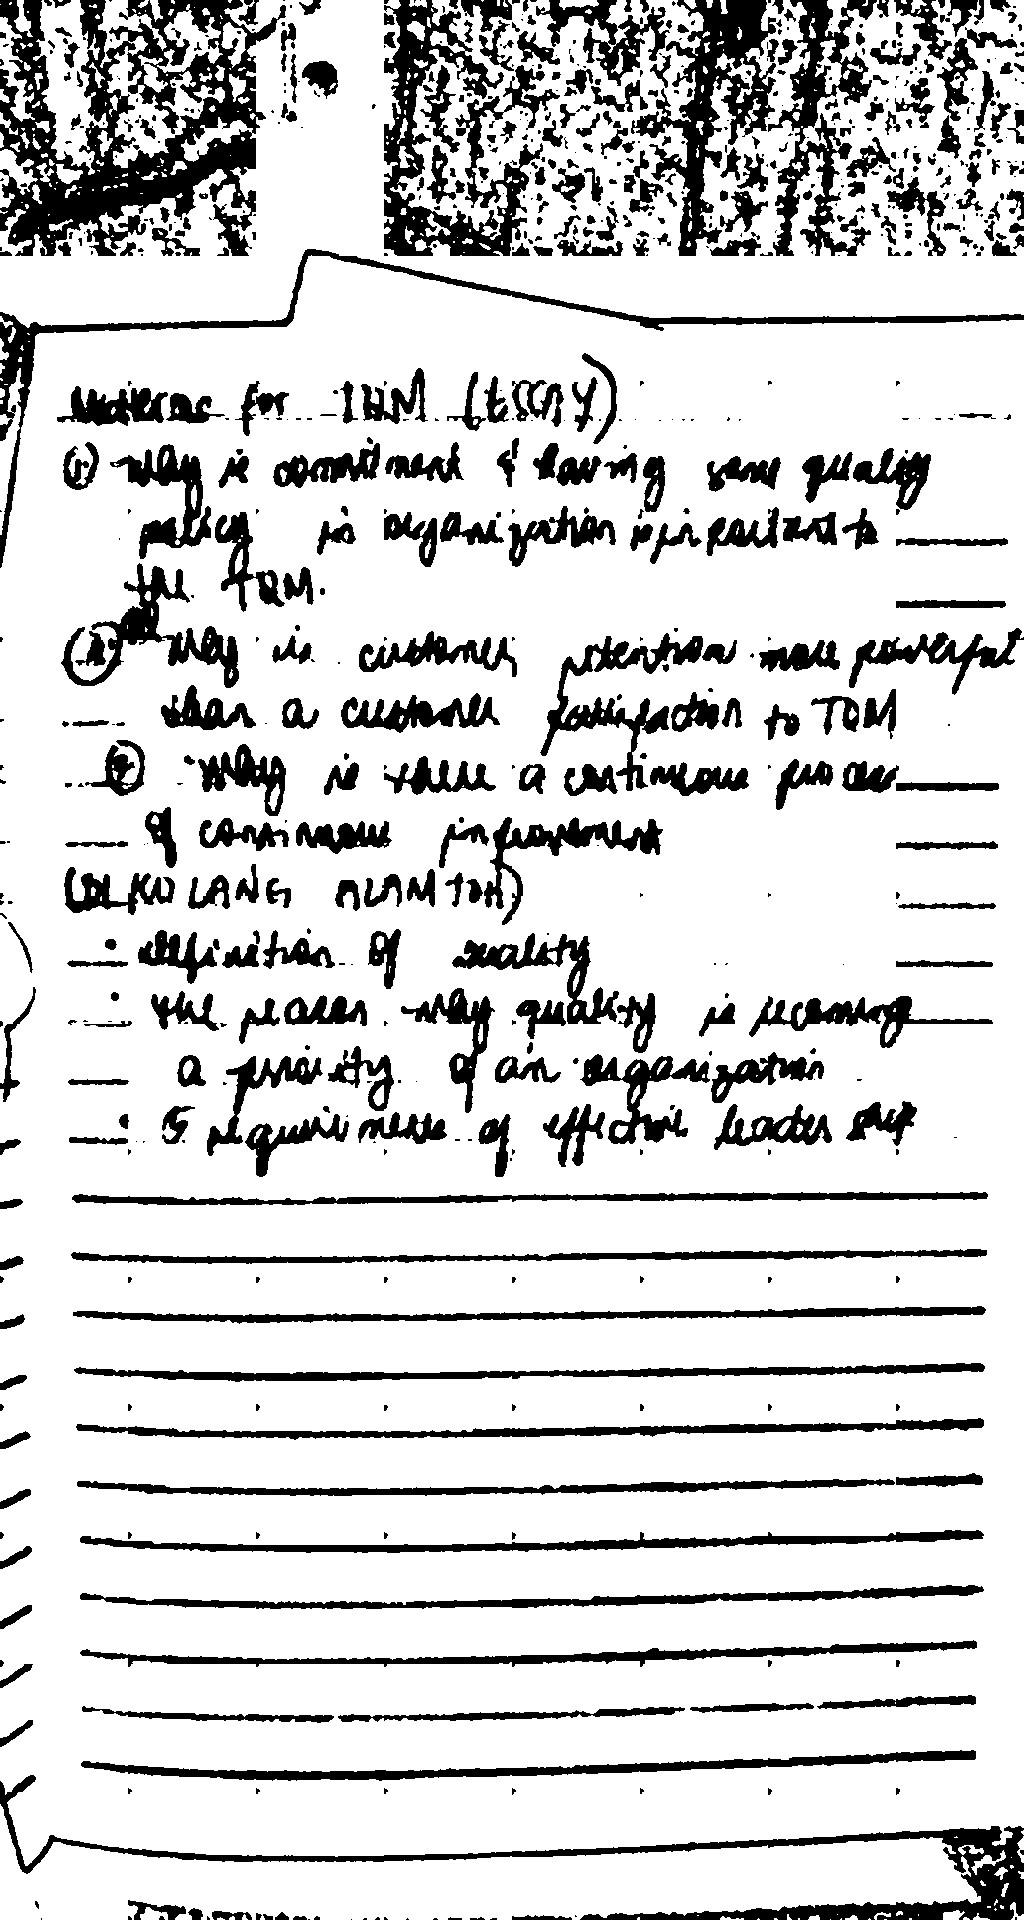 Midterms for THM (ESSAY)
① Why is commitment & having same quality
policy in organization is important to
the TQM.
② Why is customer retention more powerful
than a customer satisfaction to TQM
③ Why is there a continuous process
of continuous improvement
(DI KO LANG ALAM TOH)
• definition of quality
• the reason why quality is becoming
a priority of an organization
• 5 requirements of effective leadership